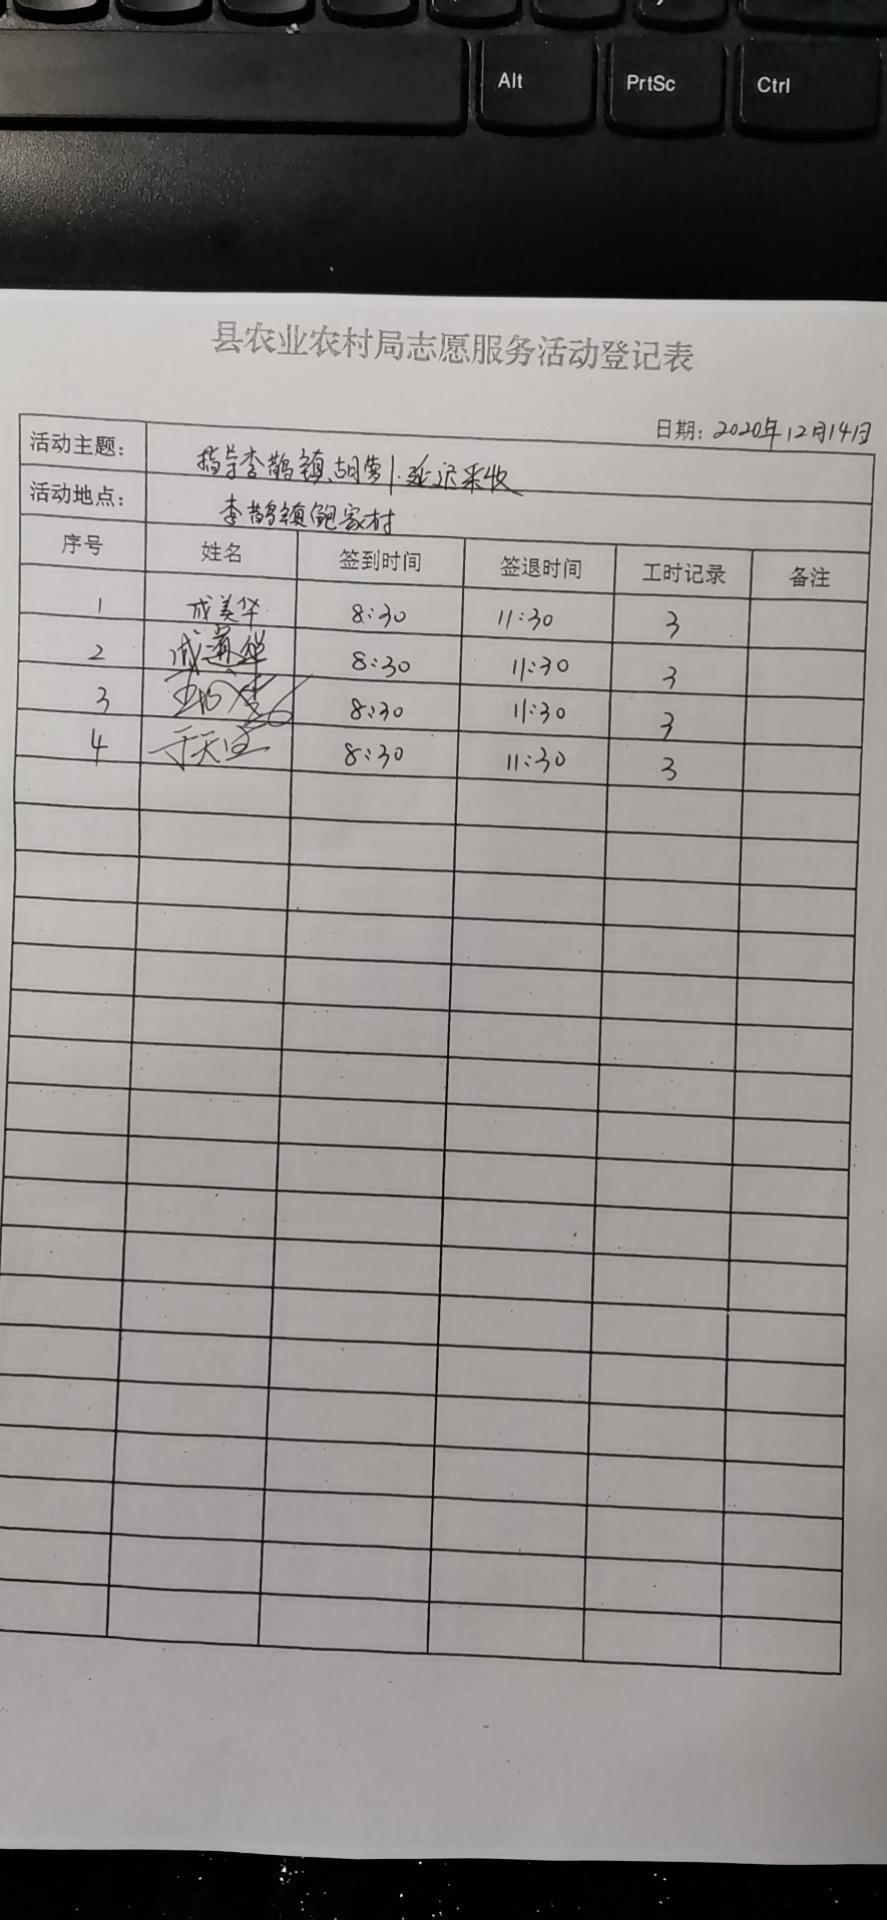 Alt PrtSc Ctrl
县农业农村局志愿服务活动登记表
日期：2020年12月14日
活动主题： 指导李鹊镇胡萝卜延迟采收
活动地点： 李鹊镇鲍家村
序号 姓名 签到时间 签退时间 工时记录 备注
1 成美华 8:30 11:30 3
2 8:30 11:30 3
3 8:30 11:30 3
4 8:30 11:30 3